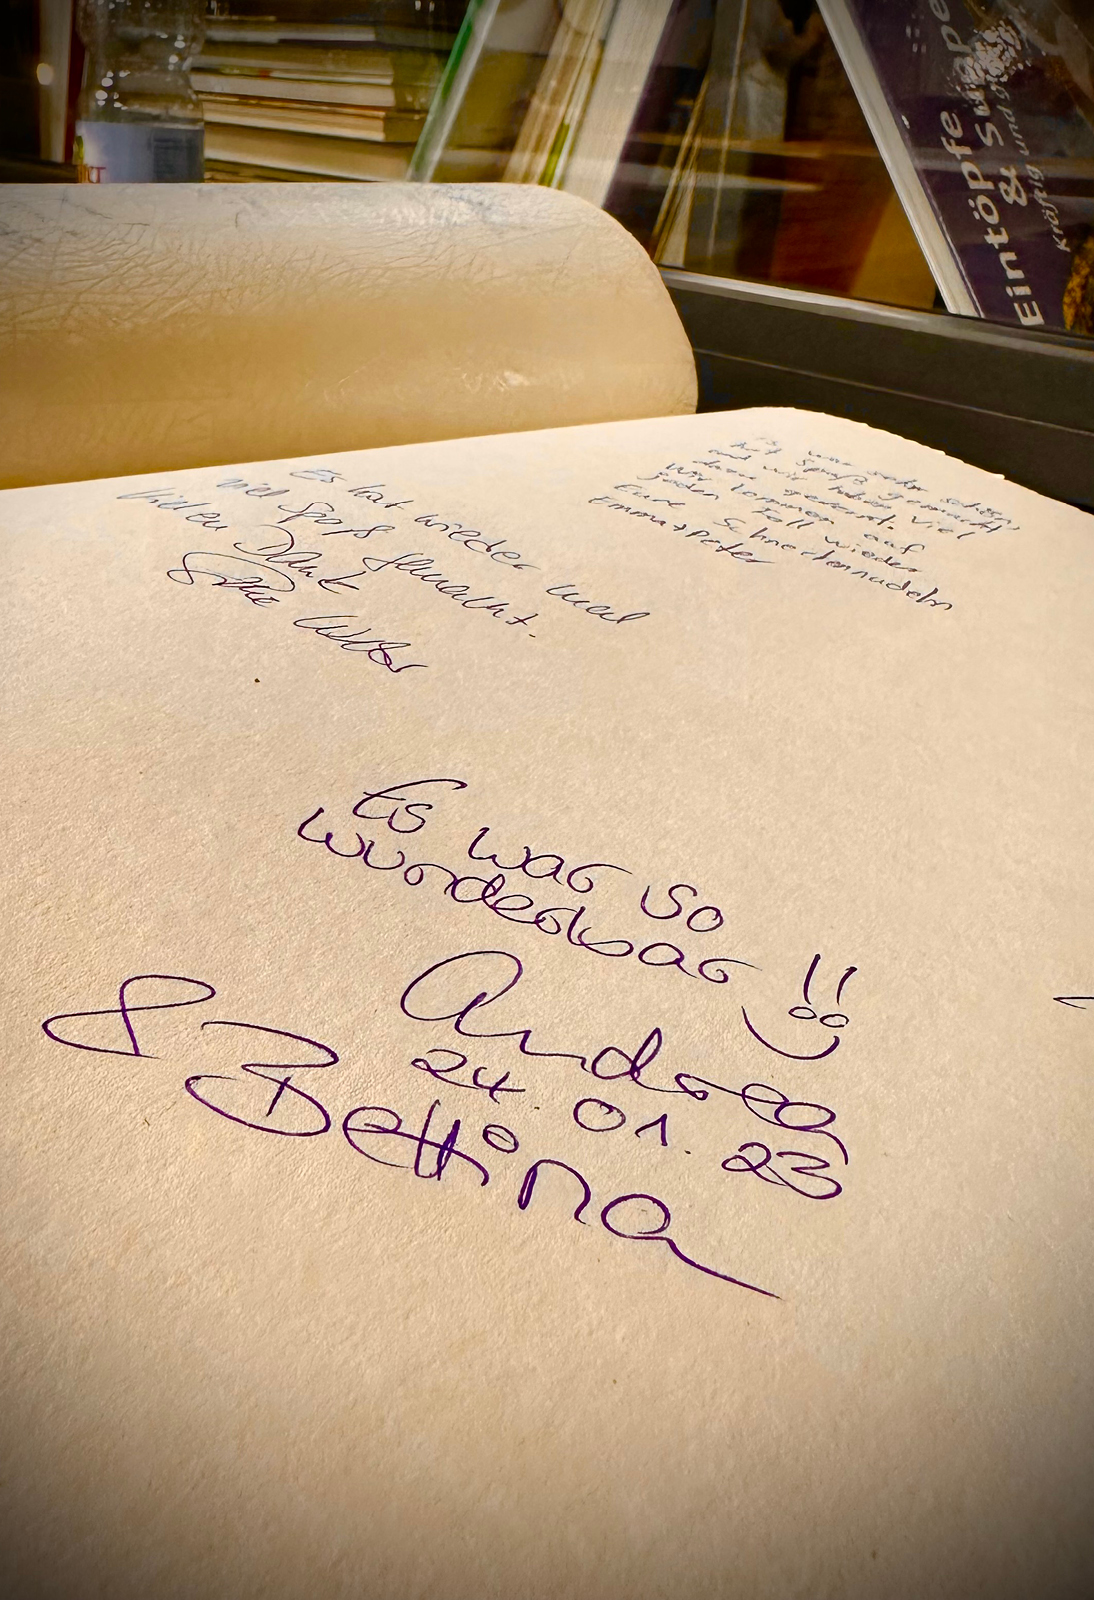 Eintöpfe
& Suppe
kräftig und
Es hat wieder mal
viel Spaß gemacht.
Vielen Dank
Es war sehr schön,
hat Spaß gemacht
und wir haben viel
dazu gelernt.
Wir kommen auf
jeden Fall wieder
Eure Schneckennudeln
Emma+Peter
Es war so
wunderbar !!
Andrea
24.01.23
& Bettina